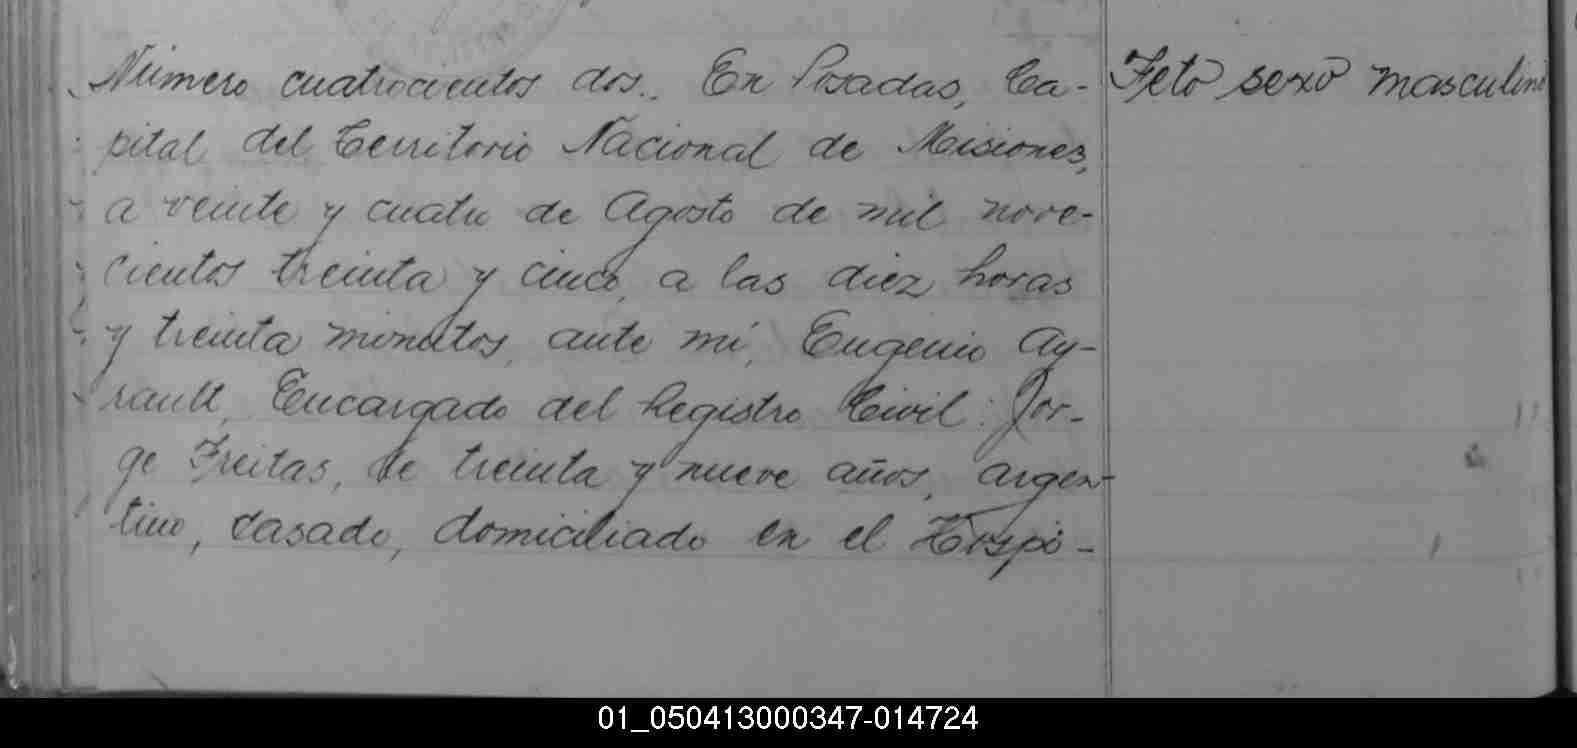 Número cuatrocientos dos.. En Posadas, Ca-
pital del Territorio Nacional de Misiones,
a veinte y cuatro de Agosto de mil nove-
cientos treinta y cinco, a las diez horas
y treinta minutos, ante mi, Eugenio Ay-
rault, Encargado del Registro Civil: Jor-
ge Freitas, de treinta y nueve años, argen-
tino, casado, domiciliado en el Hospi-
Feto sexo masculino
01_050413000347-014724